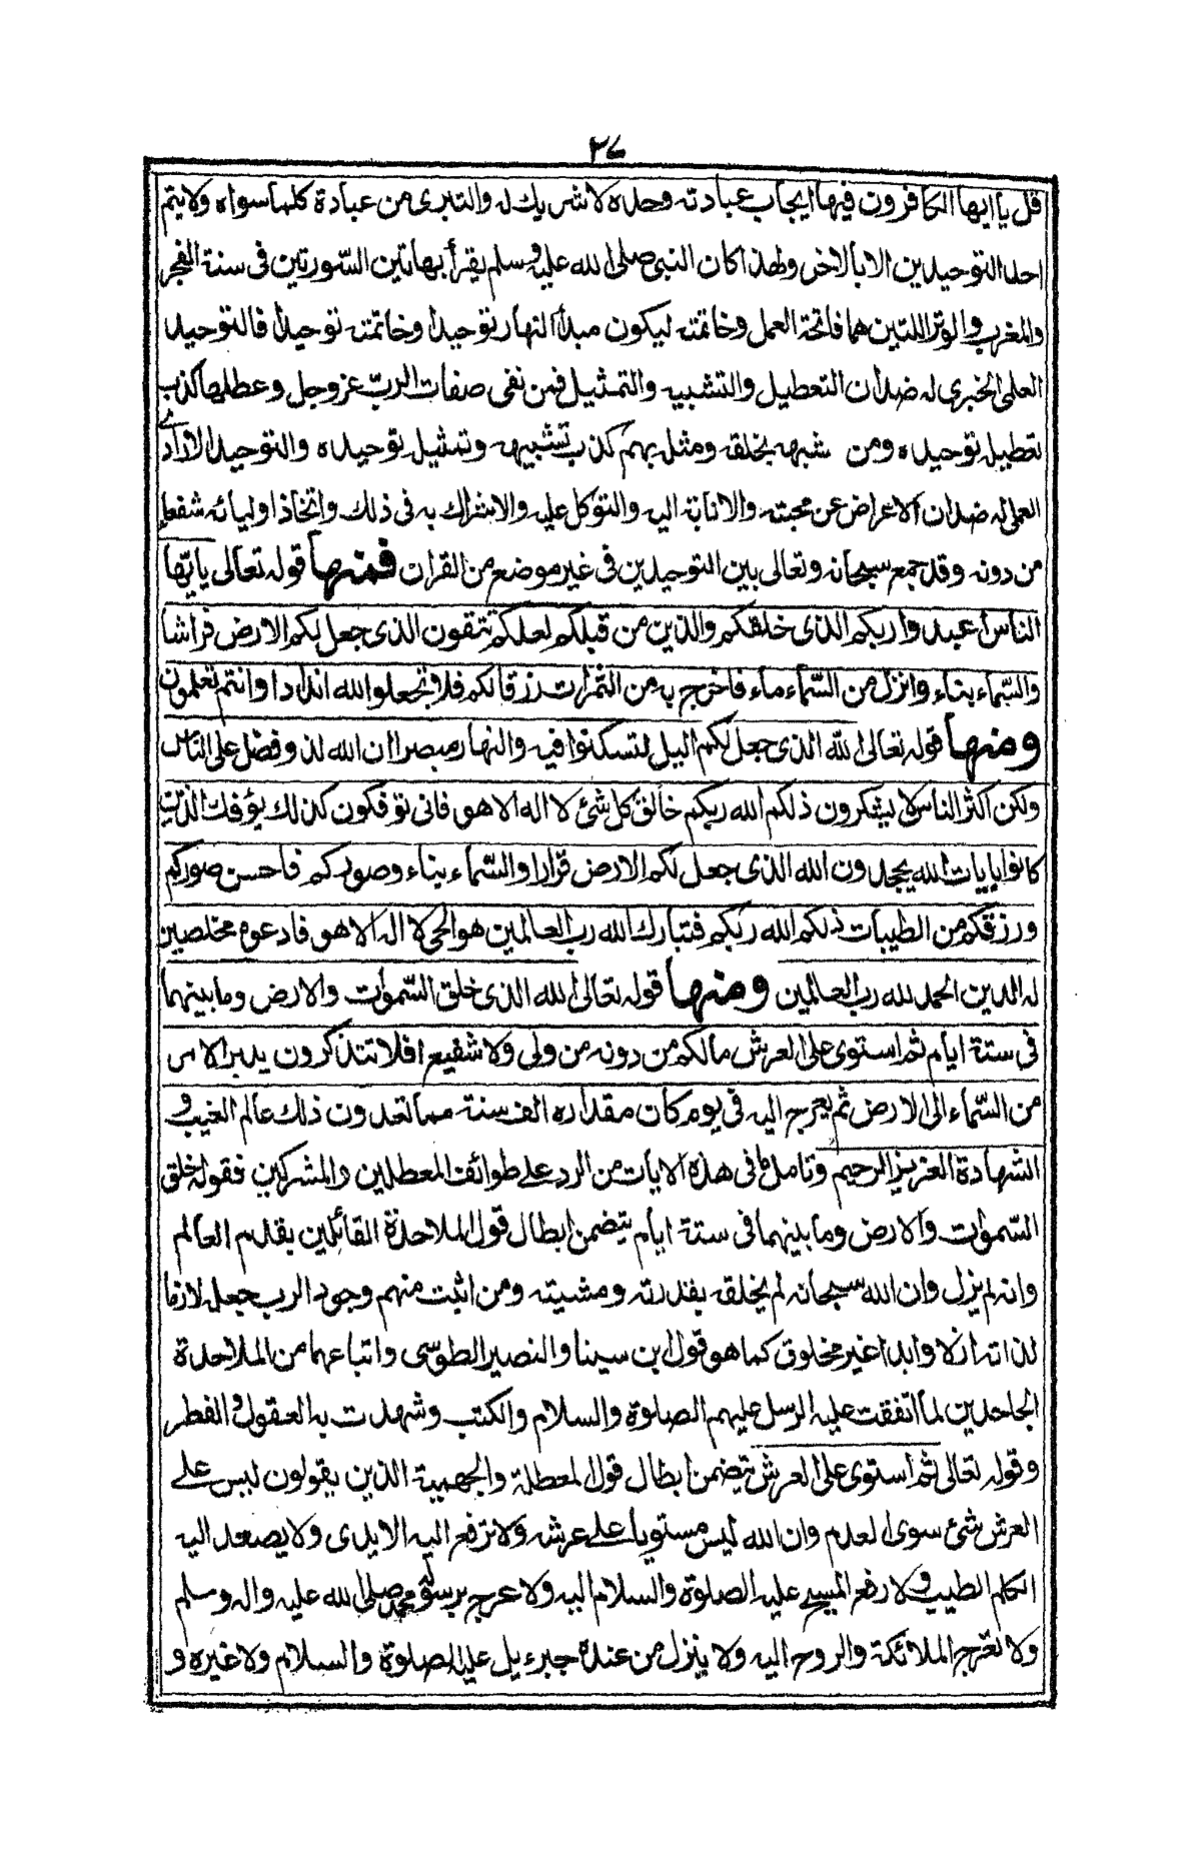 ٢٧
قل يا ايها الكافرون فيها ايجاب عبادته وحده لا شريك له والتبرى من عبادة كلما سواه ولا يتم
احد التوحيدين الا بالاخر ولهذا كان النبى صلى الله عليه وسلم يقرأ بهاتين السّورتين فى سنة الفجر
والمغرب والوتر اللتين هما فاتحة العمل وخاتمته ليكون مبدأ النهار توحيدا وخاتمته توحيدا فالتوحيد
العلمى الخبرى له ضدان التعطيل والتشبيه والتمثيل فمن نفى صفات الربّ عز وجل وعطلها كذب
تعطيله توحيده ومن شبهه بخلقه ومثله بهم كذب تشبيهه وتمثيله توحيده والتوحيد الارادى
العملى له ضدان الاعراض عن محبته والانابة اليه والتوكل عليه والاشراك به فى ذلك واتخاذ اوليائه شفعاء
من دونه وقد جمع سبحانه وتعالى بين التوحيدين فى غير موضع من القران فمنها قوله تعالى يا ايّها
الناس اعبدوا ربكم الذى خلقكم والذين من قبلكم لعلكم تتقون الذى جعل لكم الارض فراشا
والسّماء بناء وانزل من السّماء ماء فاخرج به من الثمرات رزقا لكم فلا تجعلوا لله اندادا وانتم تعلمون
ومنها قوله تعالى الله الذى جعل لكم اليل لتسكنوا فيه والنهار مبصرا ان الله لذو فضل على الناس
ولكن اكثر الناس لا يشكرون ذلكم الله ربكم خالق كل شئ لا اله الا هو فانى تؤفكون كذلك يؤفك الذين
كانوا بايات الله يجحدون الله الذى جعل لكم الارض قرارا والسّماء بناء وصوركم فاحسن صوركم
ورزقكم من الطيبات ذلكم الله ربكم فتبارك الله رب العالمين هو الحى لا اله الا هو فادعوه مخلصين
له الدين الحمد لله رب العالمين ومنها قوله تعالى الله الذى خلق السّموات والارض وما بينهما
فى ستة ايام ثم استوى على العرش مالكم من دونه من ولى ولا شفيع افلا تتذكرون يدبر الامر
من السّماء الى الارض ثم يعرج اليه فى يوم كان مقداره الف سنة مما تعدون ذلك عالم الغيب و
الشهادة العزيز الرحيم وتامل ما فى هذه الايات من الرد على طوائف المعطلين والمشركين فقوله خلق
السّموات والارض وما بينهما فى ستة ايام يتضمن ابطال قول الملاحدة القائلين بقدم العالم
وانه لم يزل وان الله سبحانه لم يخلقه بقدرته ومشيته ومن اثبت منهم وجود الرب جعله لازما
لذاته ازلا وابدا غير مخلوق كما هو قول ابن سينا والنصير الطوسى واتباعهما من الملاحدة
الجاحدين لما اتفقت عليه الرسل عليهم الصلوة والسلام والكتب وشهدت به العقول والفطر
وقوله تعالى ثم استوى على العرش يتضمن ابطال قول المعطلة والجهمية الذين يقولون ليس على
العرش شئ سوى العدم وان الله ليس مستويا على عرشه ولا ترفع اليه الايدى ولا يصعد اليه
الكلم الطيب ولا رفع المسيح عليه الصلوة والسلام اليه ولا عرج برسوله محمد صلى الله عليه واله وسلم
ولا تعرج الملائكة والروح اليه ولا ينزل من عنده جبرءيل عليه الصلوة والسلام ولا غيره و